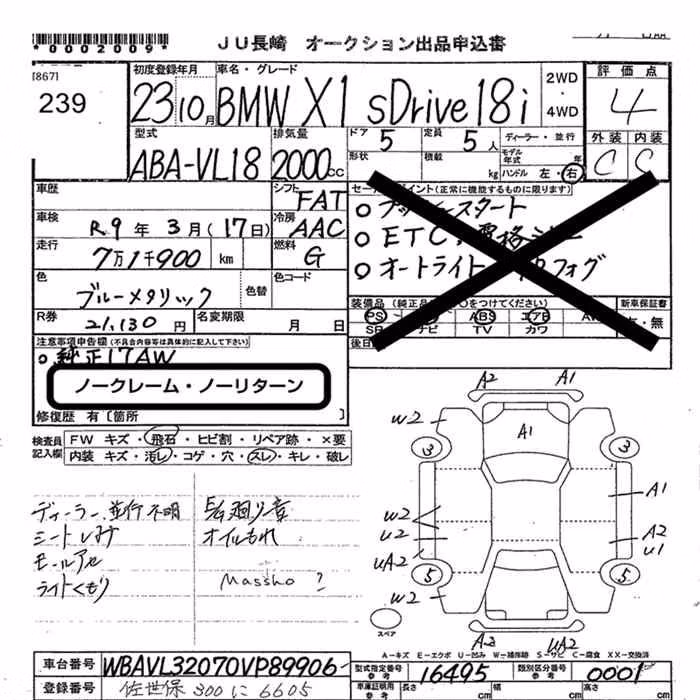 *0002009*
JU長崎 オークション出品申込書
[867]
239
初度登録年月
23 10月
車名・グレード
BMW X1 sDrive18i
2WD
・
4WD
評価点
4
型式
ABA-VL18
排気量
2000cc
ドア 5
定員 5人
ディーラー・並行
形状
積載 kg
モデル年式 年
ハンドル 左・右
外装 内装
C C
車歴
シフト FAT
車検
R9年3月(17日)
冷房 AAC
走行
7万1千900 km
燃料 G
色
ブルーメタリック
色替
色コード
R券
21,130円
名変期限
月 日
セールスポイント(正常に機能するものに限ります)
○プッシュスタート
○ETC
○オートライト フォグ
装備品
新車保証書
PS ABS エアB
SR ナビ TV カワ
有・無
後日
注意事項申告欄(不具合内容等は具体的に記入して下さい)
○純正17AW
ノークレーム・ノーリターン
修復歴 有〔箇所 〕
検査員記入欄
FW キズ・飛石・ヒビ割・リペア跡・×要
内装 キズ・汚レ・コゲ・穴・スレ・キレ・破レ
ディーラー、並行不明
シートしみ
モールアセ
ライトくもり
オイルもれ
Massho ?
A2 A1
W2
A1
3 3
W2
U2
UA2
A1
A2
U1
5 5
W2
スペア
A2 UA2
A-キズ E-エクボ U-凹み W-補修跡 S-サビ C-腐食 XX-交換済
車台番号
WBAVL32070VP89906
型式指定番号
参考
16495
類別区分番号
参考
0001
登録番号
佐世保 300 に 6605
車庫証明用
参考
長さ cm
幅 cm
高さ cm